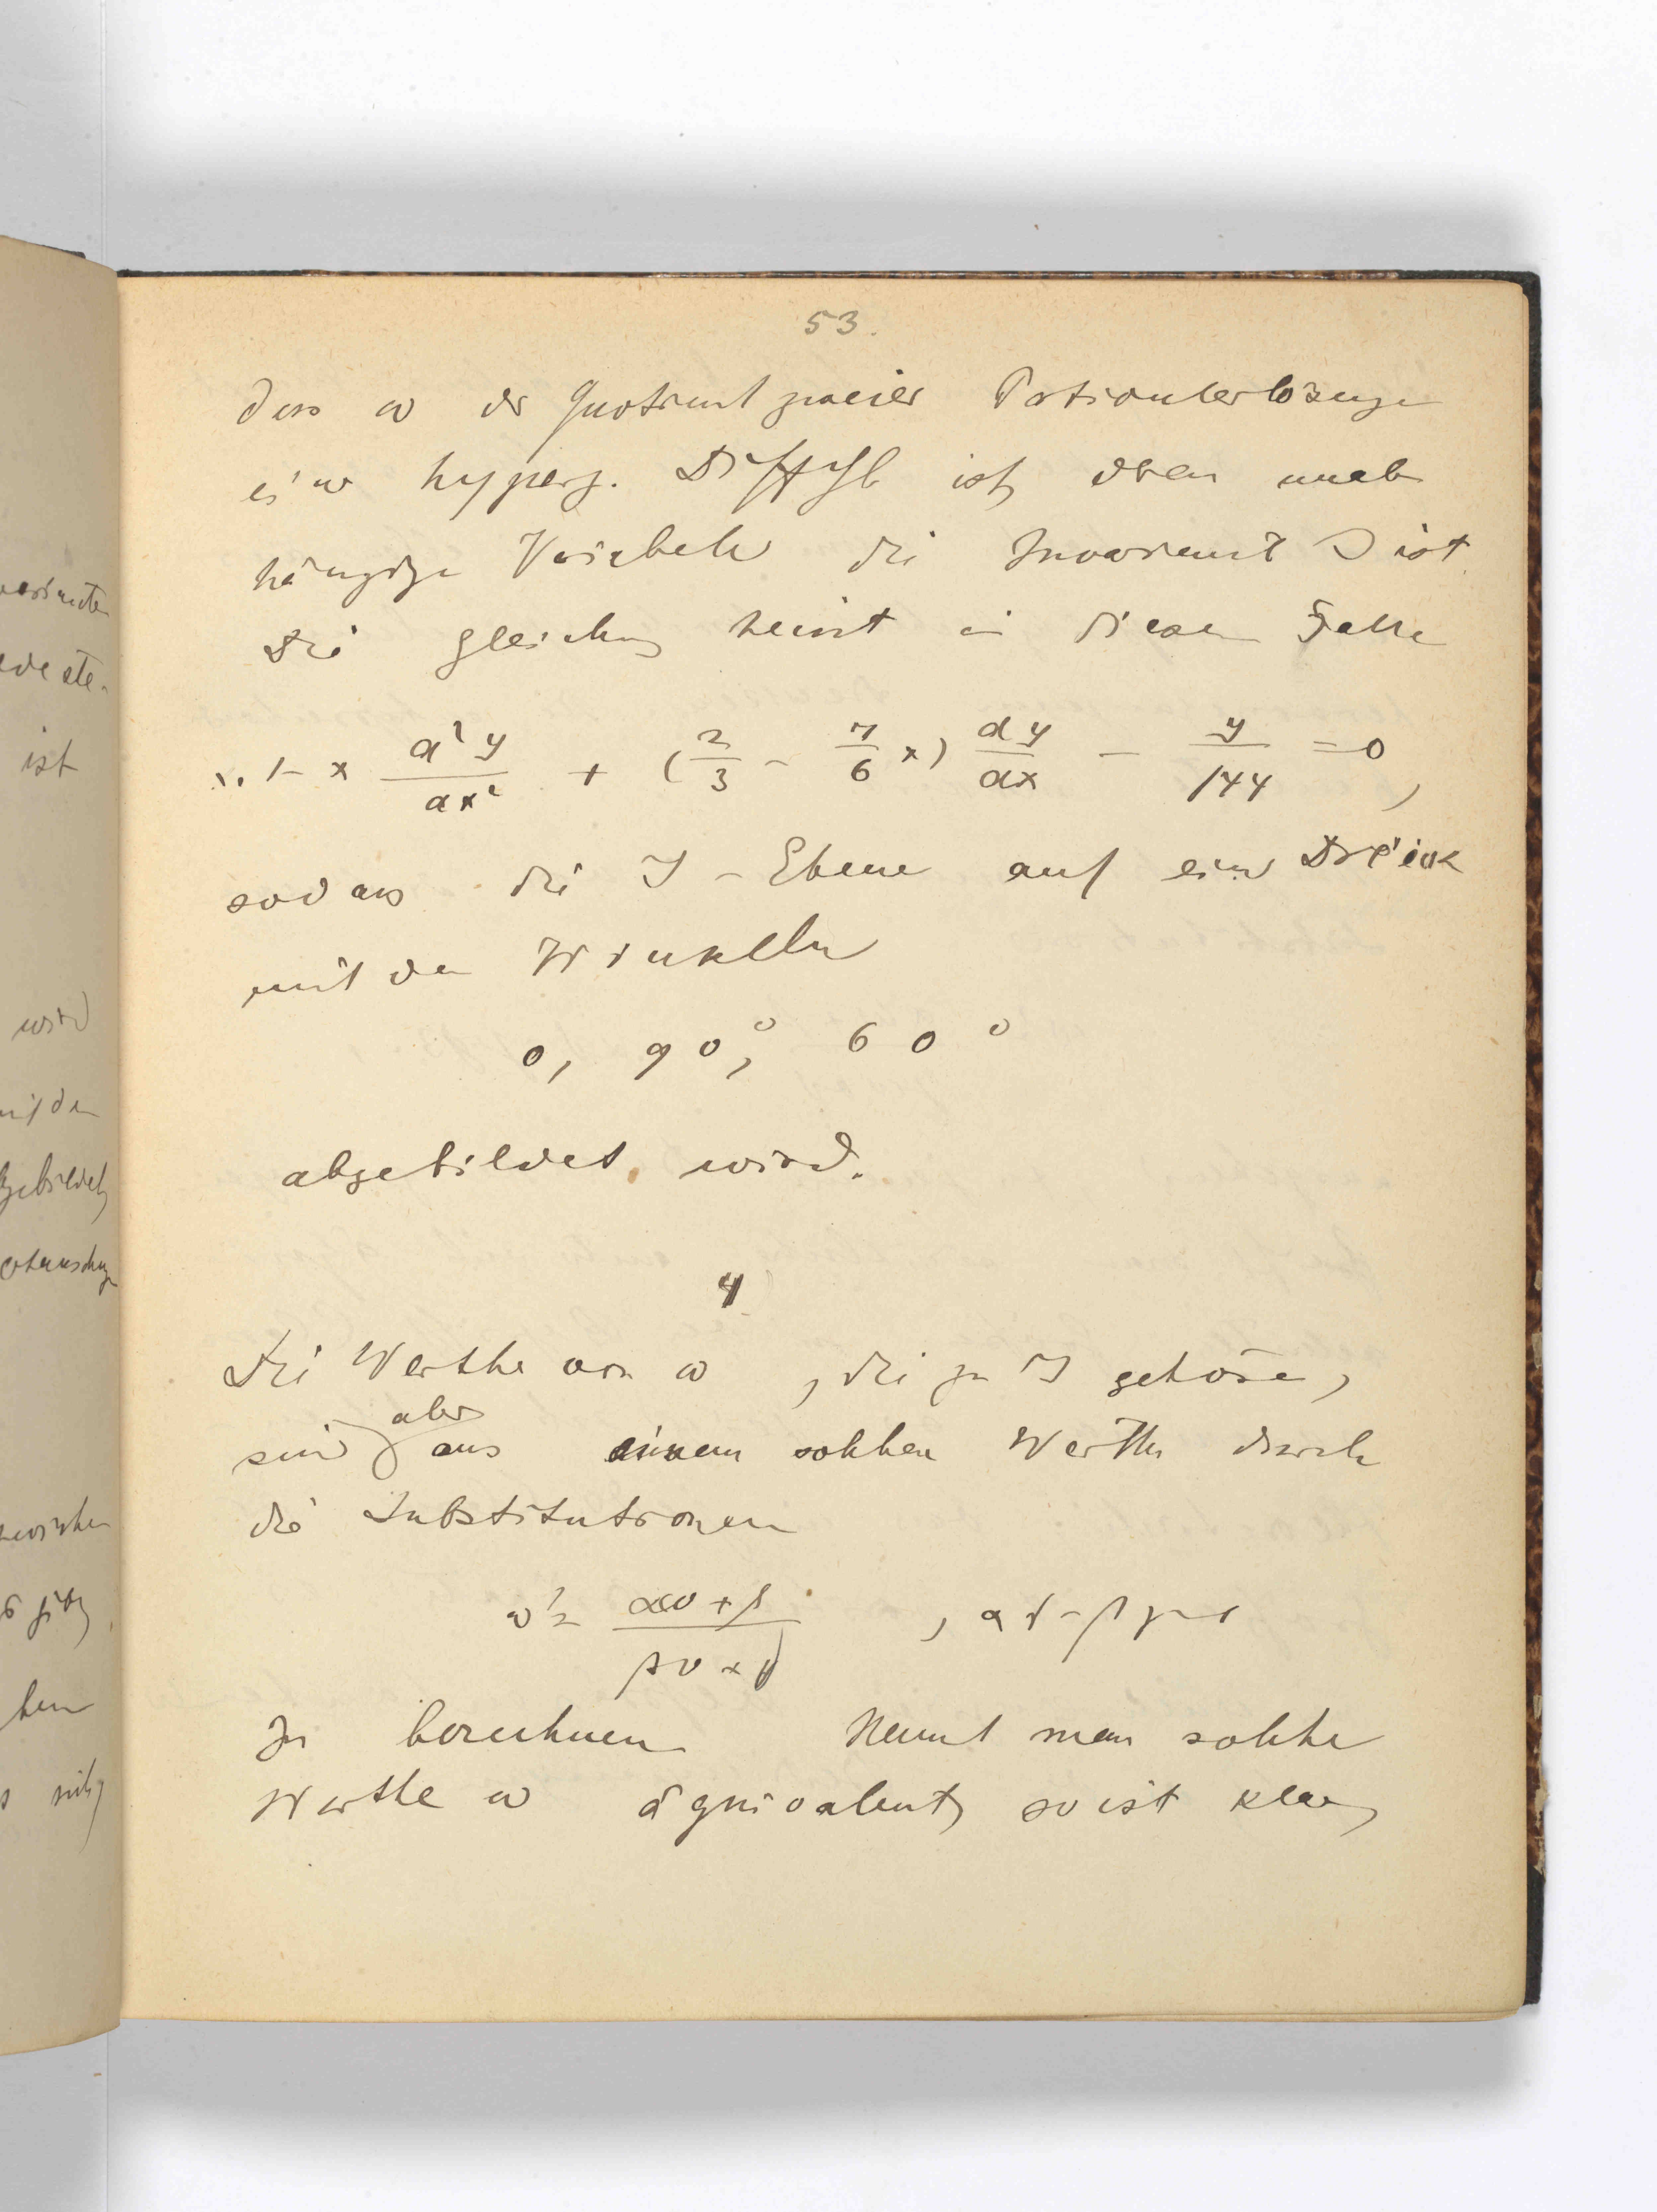 53.
dass ω der Quotient zweier Partikulerlösunge
einer hyperg. Diffgl ist, deren unab
hängige Variabele die Invariante J ist.
Die Gleichung heisst in diesem Falle
x . 1 - x d²y/dx² + (2/3 - 7/6 x) dy/dx - y/144 = 0,
sodass die J-Ebene auf ein Dreieck
mit den Winkeln
0, 90°, 60°
abgebildet wird.
4
Die Werthe von ω, die zu J gehören,
sind aber aus einem solchen Werthe durch
die Substitutionen
ω' = αω+β / γω+δ , αδ-βγ=1
zu berechnen Nennt man solche
Werthe ω äquivalent, so ist klar,
ist
wird
mit den